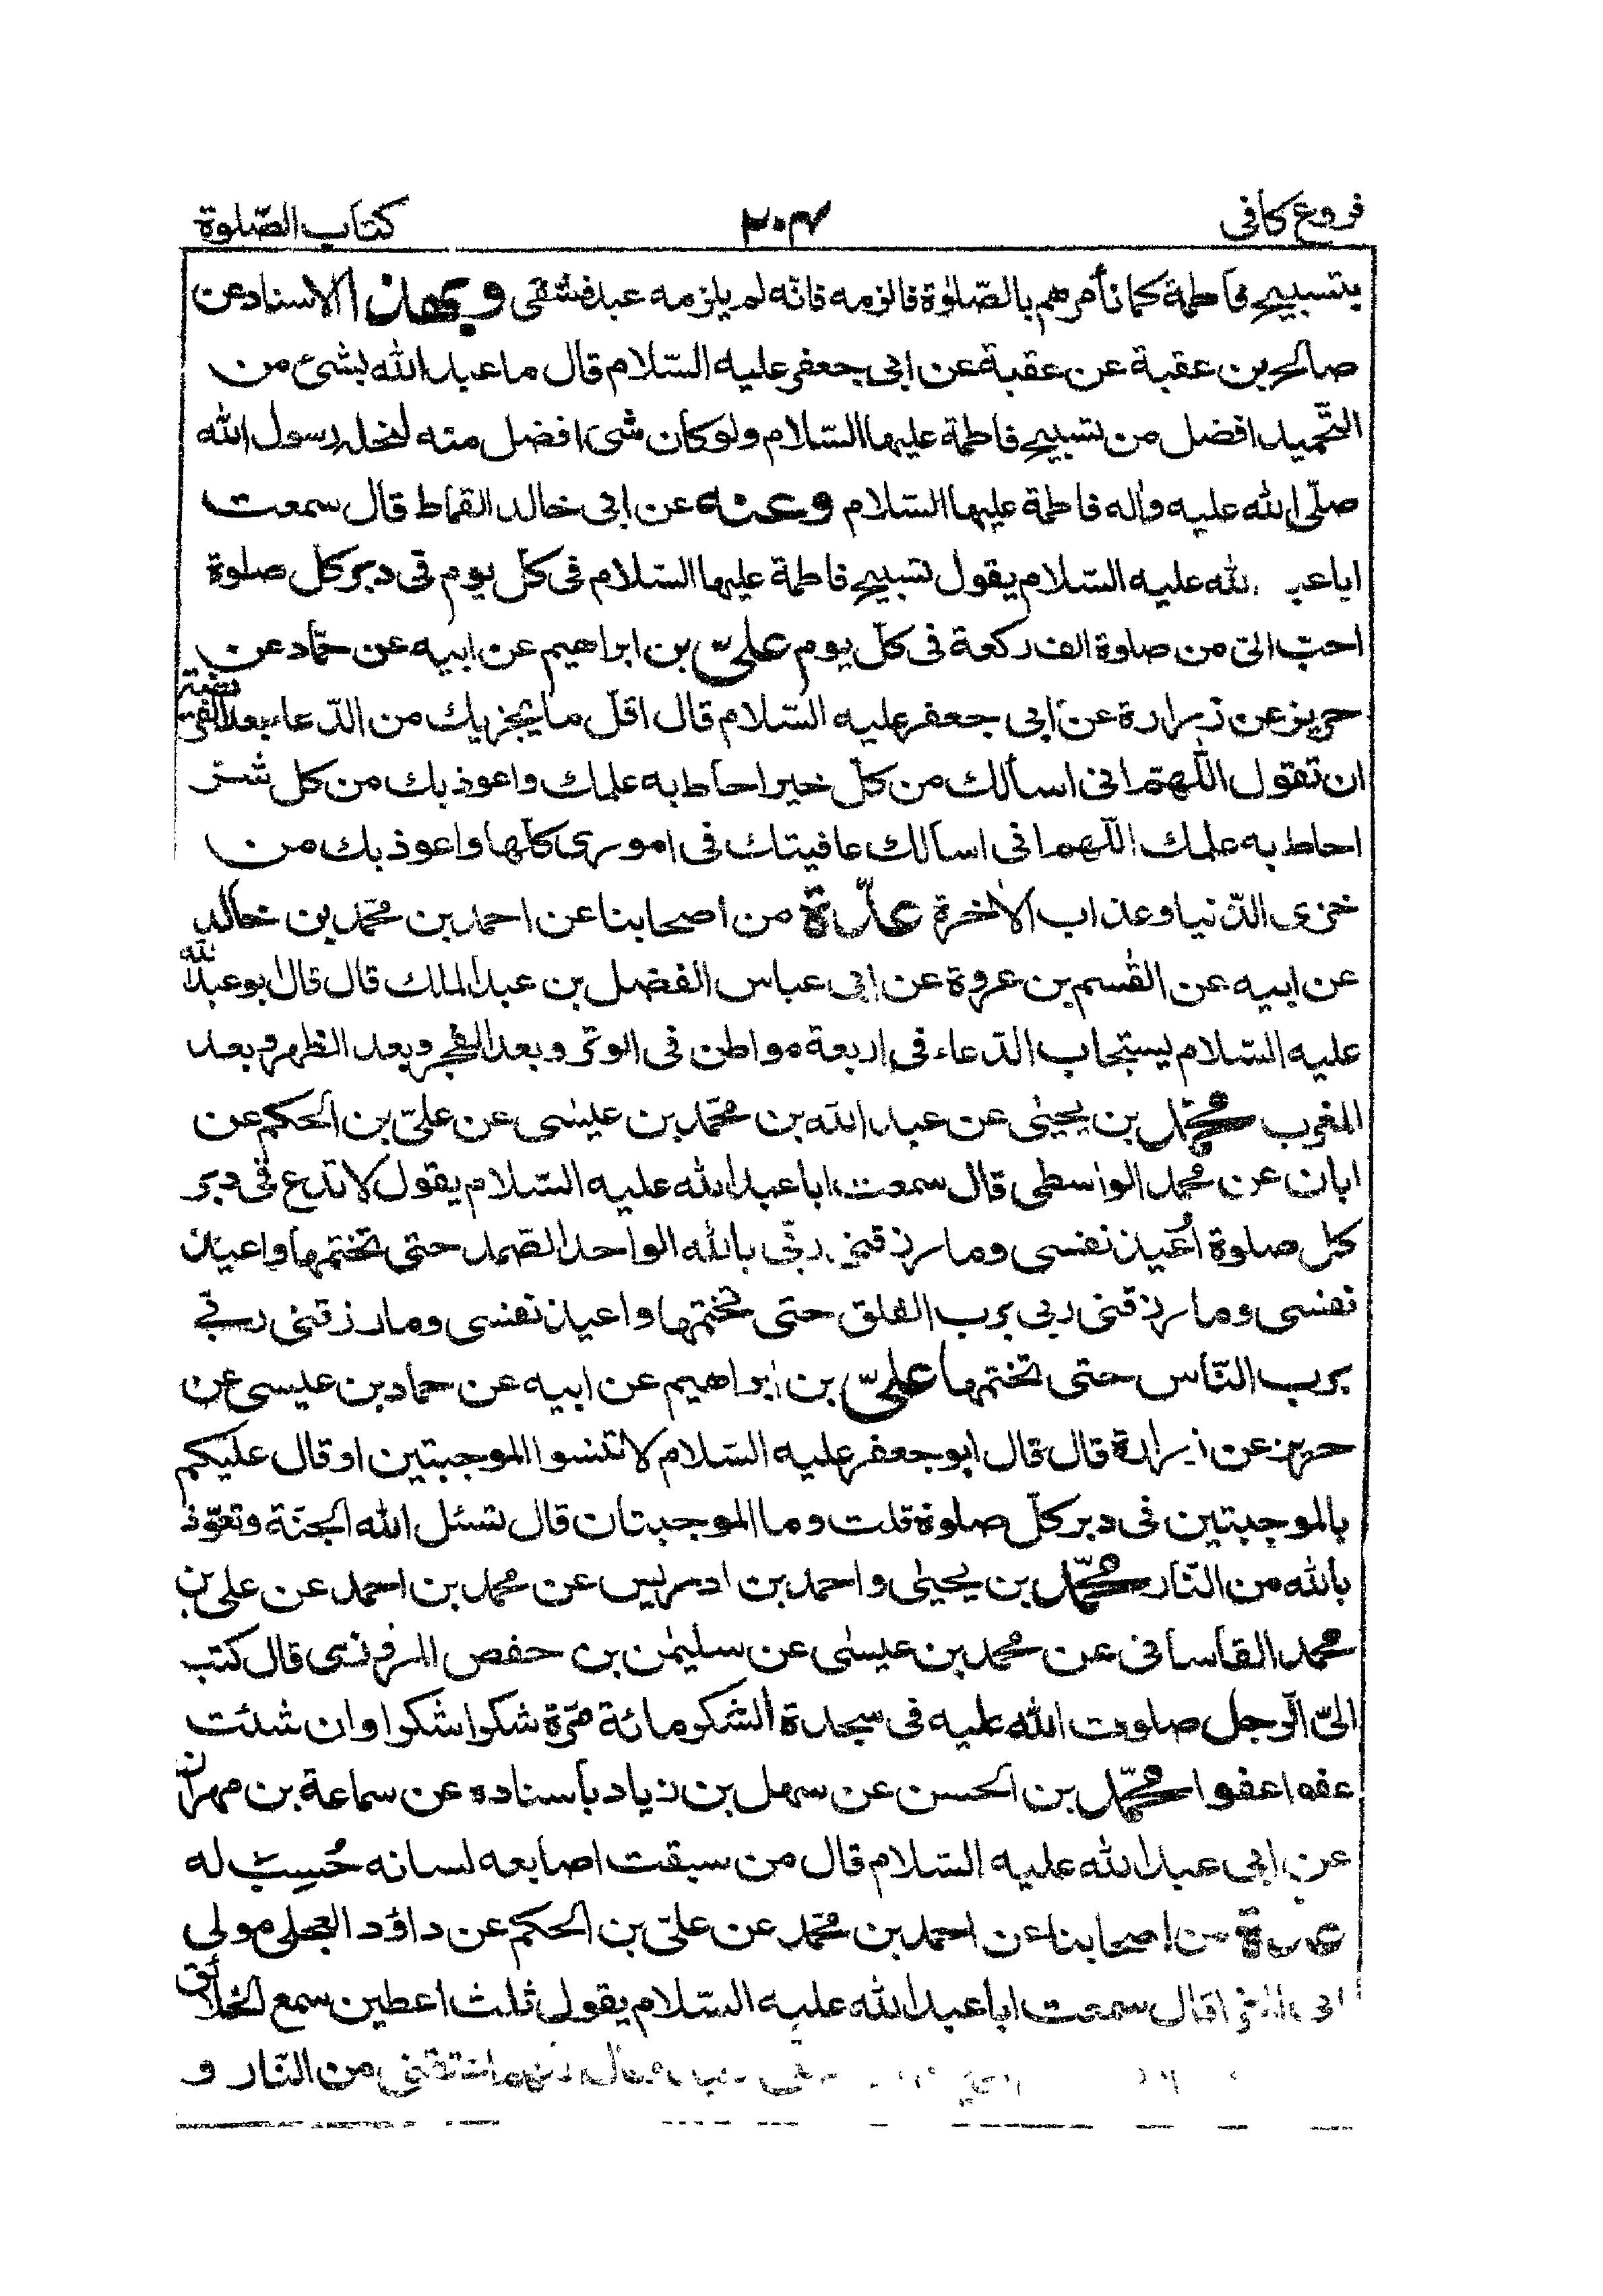 فروع كافى
٢٠٤
كتاب الصّلوة
بتسبيح فاطمة كما نأمرهم بالصّلوة فالزمه فانّه لم يلزمه عبد فشقى وبهذا الاسناد عن
صالح بن عقبة عن عقبة عن ابى جعفر عليه السّلام قال ما عبد الله بشئ من
التّحميد افضل من تسبيح فاطمة عليها السّلام ولو كان شئ افضل منه لنحله رسول الله
صلّى الله عليه واله فاطمة عليها السّلام وعنه عن ابى خالد القماط قال سمعت
اباعبد الله عليه السّلام يقول تسبيح فاطمة عليها السّلام فى كلّ يوم فى دبر كل صلوة
احبّ الىّ من صلوة الف ركعة فى كلّ يوم علىّ بن ابراهيم عن ابيه عن حمّاد عن
حريز عن زرارة عن ابى جعفر عليه السّلام قال اقلّ ما يجزيك من الدّعاء بعد الفريضة
ان تقول اللّهمّ انى اسألك من كلّ خير احاط به علمك واعوذ بك من كل شرّ
احاط به علمك اللّهم انى اسألك عافيتك فى امورى كلّها واعوذ بك من
خزى الدّنيا وعذاب الاخرة عدّة من اصحابنا عن احمد بن محمّد بن خالد
عن ابيه عن القسم بن عروة عن ابى عباس الفضل بن عبد الملك قال قال ابو عبد الله
عليه السّلام يستجاب الدّعاء فى اربعة مواطن فى الوتر وبعد الفجر وبعد الظهر وبعد
المغرب محمّد بن يحيى عن عبد الله بن محمّد بن عيسى عن علىّ بن الحكم عن
ابان عن محمد الواسطى قال سمعت ابا عبد الله عليه السّلام يقول لا تدع فى دبر
كل صلوة اُعيذ نفسى وما رزقنى ربّى بالله الواحد الصّمد حتى تختمها واعيذ
نفسى وما رزقنى ربى برب الفلق حتى تختمها واعيذ نفسى وما رزقنى ربّى
برب النّاس حتى تختمها علىّ بن ابراهيم عن ابيه عن حماد بن عيسى عن
حريز عن زرارة قال قال ابو جعفر عليه السّلام لا تنسوا الموجبتين او قال عليكم
بالموجبتين فى دبر كلّ صلوة قلت وما الموجبتان قال تسئل الله الجنّة وتعوّذ
بالله من النّار محمّد بن يحيى واحمد بن ادريس عن محمد بن احمد عن على بن
محمد القاسانى عن محمد بن عيسى عن سليمن بن حفص المروزى قال كتب
الىّ الرّجل صلوت الله عليه فى سجدة الشكر مائة مرّة شكرا شكرا وان شئت
عفوا عفوا محمّد بن الحسن عن سهل بن زياد باسناده عن سماعة بن مهران
عن ابى عبد الله عليه السّلام قال من سبقت اصابعه لسانه حُسِبَ له
عدة من اصحابنا عن احمد بن محمّد عن علىّ بن الحكم عن داؤد العجلى مولى
ابى المغرا قال سمعت ابا عبد الله عليه السّلام يقول ثلث اعطين سمع الخلائق
من النّار و